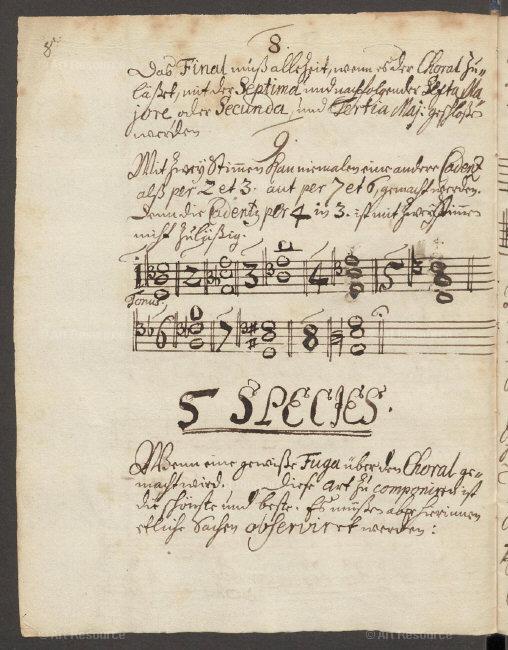 8
8.
Das Final muß allezeit, wenn es der Choral zu-
läßet, mit der Septima und nachfolgender Sexta Ma
jore oder Secunda, und Tertia Maj: geschloßen
werden
9.
Mit zwey Stimmen kan niemalen eine andere Cadenz
alß per 2 et 3. aut per 7 et 6, gemacht werden.
Denn die Cadentz per 4 in 3. ist mit zwey Stimmen
nicht zuläßig.
1 2 3 4 5
Tonus.
6 7 8
5 SPECIES.
Wenn eine gewiße Fuga über den Choral ge-
macht wird. Diese Art zu componiren ist
die schönste und beste. Es müßen aber hierinnen
etliche Sachen observiret werden:
© Art Resource
© Art Resource